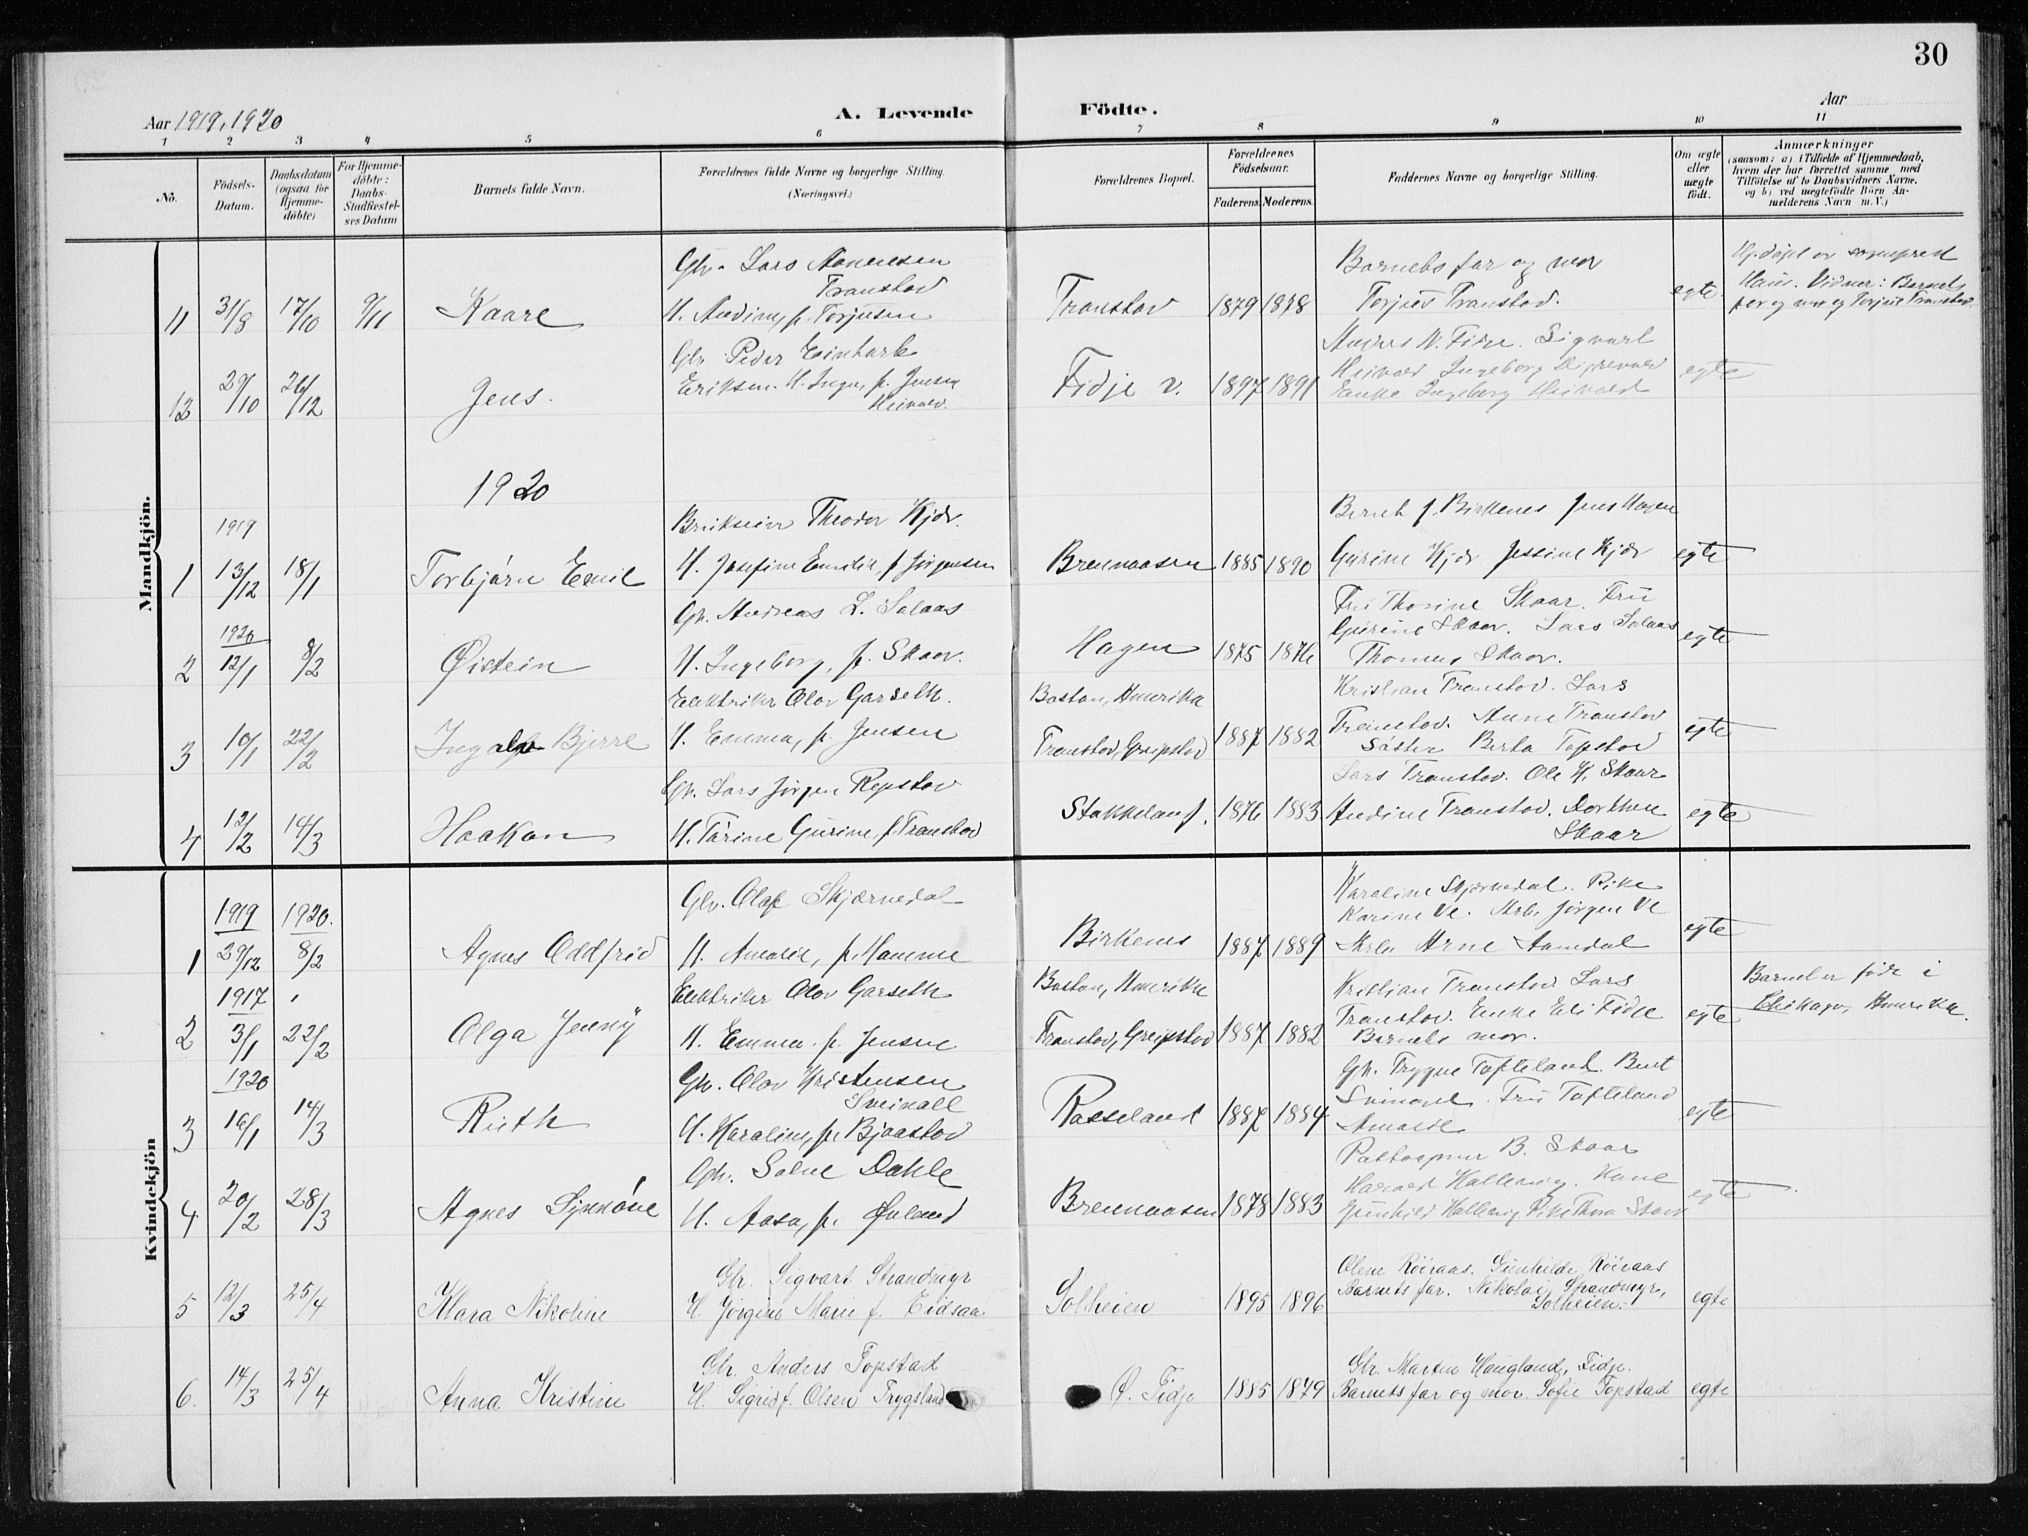 30
Aar 1919, 1920
A. Levende Födte.
Aar
1 2 3 4 5 6 7 8 9 10 11
No.
Födsels-Datum.
Daabsdatum (ogsaa for Hjemme-döbte)
For Hjemme-döbte: Daabs-Stadfæstel-ses Datum
Barnets fulde Navn.
Forældrenes fulde Navne og borgerlige Stilling. (Næringsvei.)
Forældrenes Bopæl.
Forældrenes Födselsaar.
Faderens. Moderens.
Faddernes Navne og borgerlige Stilling.
Om ægte eller uægte födt.
Anmærkninger
(saasom: a) i Tilfælde af Hjemmedaab,
hvem der har forrettet samme med
Tilföielse af to Daabsvidners Navne,
og b) ved uægtefödte Börn An-
melderens Navn m. V.)
Mandkjön.
11 31/8 17/10 9/11 Kaare
Gbr. Lars Aanensen
Transtod
H. Andine, f. Torjusen
Transtod 1879 1878
Barnets far og mor
Torjus Transtod.
egte
Hj.døpt av sogneprest
Haus. Vidner: Barnets
far og mor og Torjus Transtod
12 29/10 26/12 Jens.
Gbr Peder
Eriksen. H. Inga, f. Jensen
Heivold.
Fidje v. 1897 1891
Anders N. Fidje. Sigvart
Heivold Ingeborg
Enke Ingeborg Heivold
egte
1920
1919
1 13/12 18/1 Torbjørn Emil
Theodor Kjær.
H. Josefine Emilie f. Jørgensen
Brennaasen 1885 1890
Bernt J. Birkenes Jens Hagen
Gurine Kjær Jessine Kjær
egte
1920
2 12/1 8/2 Øistein
Gbr. Andreas L. Salaas
H. Ingeborg, f. Skaar.
Hagen 1875 1876
Frk Thorine Skaar. Fru
Gurine Skaar. Lars Salaas
Thomas Skaar.
egte
3 10/1 22/2 Ingolf Bjerre
Elektriker Olav Garseth.
H. Emma, f. Jensen
Boston, Amerika
Transtod, Greipstod 1887 1882
Kristian Transtod. Lars
Transtod. Anne Transtod
Søster Berta Topstod
egte
4 12/2 14/3 Haakon
Gbr. Lars Jørgen Repstod
H. Tarine Gurine, f. Transtod
Stokkeland. 1876 1883
Lars Transtod. Ole K. Skaar
Andine Transtod. Dorthea
Skaar
egte
Kvindekjön
1919 1920.
1 29/12 8/2 Agnes Oddfrid
Gbr. Olaf Skjærnedal
H. Amalie, f. Homme
Birkenes 1887 1889
Karaline Skjærnedal. Pike
Karine Ve. Arb. Jørgen Ve
Arb. Arne Aamdal
egte
1917
2 3/1 22/2 Olga Jenny
Elektriker Olav Garseth
H. Emma f. Jensen
Boston, Amerika
Transtod, Greipstod 1887 1882
Kristian Transtod Lars
Transtod. Enke Eli Fidje
Barnets mor.
egte
Barnet er født i
Chikago, Amerika.
1920
3 16/1 14/3 Ruth
Gbr. Olav Kristensen
Sveinall
H. Karaline, f. Bjaastod
Rosseland 1887 1884
Gbr. Trygve Tofteland. Bernt
Fru Tofteland
Amalie
egte
4 20/2 28/3 Agnes Synnøve
Gbr. Salve Dahle
H. Aasa, f. Øuland
Brennaasen 1878 1883
B. Skaar
Harald Hallevig. Kone
Gunhild Hallevig Pike Thora Skaar
egte
5 12/3 25/4 Klara Nikoline
Gbr. Sigvart Strandmyr
H. Jørgine Marie f. Eidsaa
Solheien 1895 1896
Olene Røiraas. Gunhilde Røiraas
Barnets far. Nikolai Strandmyr,
Solheien.
egte
6. 14/3 25/4 Anna Kristine
Gbr. Anders Topstad
H. Sigrid f. Olsen Trygsland
Ø. Fidje 1885 1879
Gbr. Martin Haugland, Fidje.
Barnets far og mor. Sofie Topstad
egte